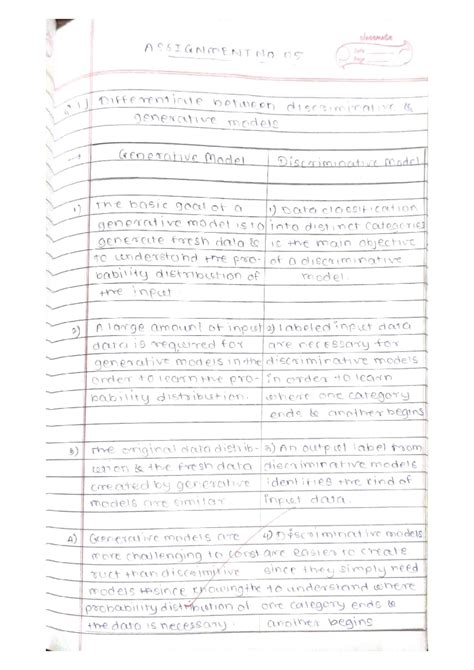 classmate
Date
Page
ASSIGNMENT NO 05
Q.1] Differentiate between discriminative &
generative models
→ Generative Model Discriminative Model
1) The basic goal of a 1) Data classification
generative model is to into distinct categories
generate fresh data & is the main objective
to understand the pro- of a discriminative
bability distribution of model.
the input
2) A large amount of input 2) labeled input data
data is required for are necessary for
generative models in the discriminative models
order to learn the pro- in order to learn
bability distribution. where one category
ends & another begins
3) The original data distrib- 3) An output label from
ution & the fresh data discriminative models
created by generative identifies the kind of
models are similar input data.
4) Generative models are 4) Discriminative models
more challenging to const are easier to create
ruct than discrimitive since they simply need
models since knowing the to understand where
probability distribution of one category ends &
the data is necessary. another begins